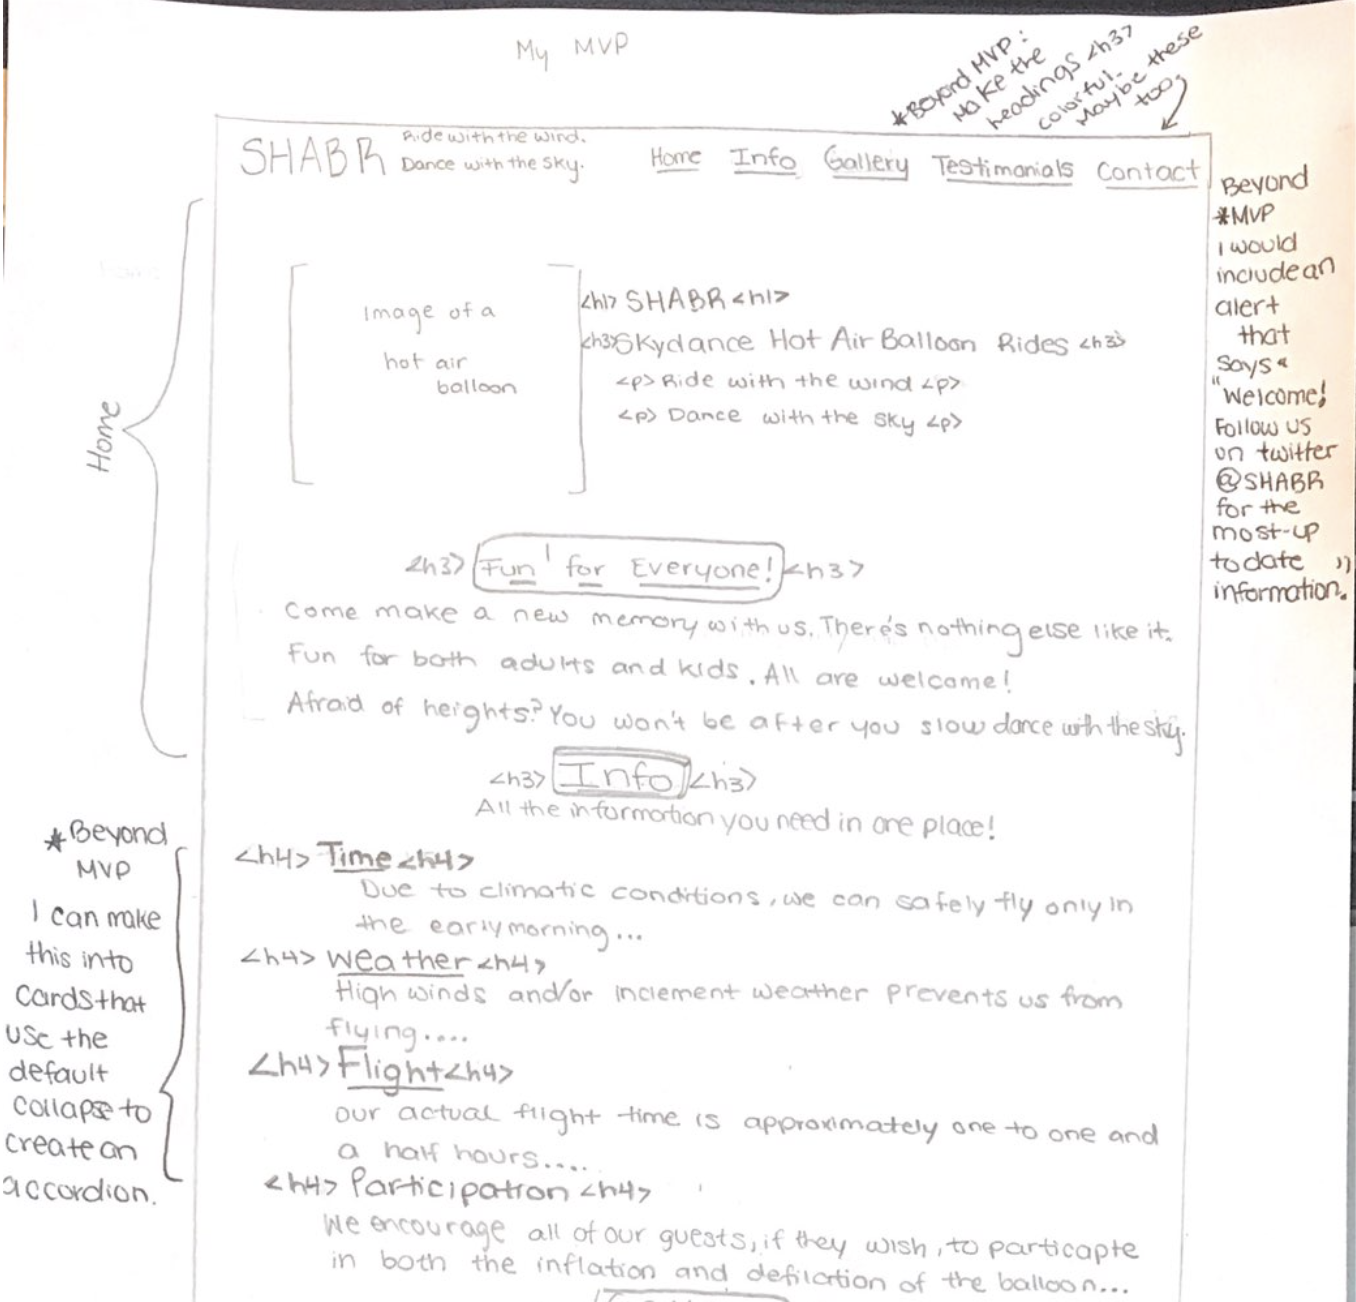 My MVP
*Beyond MVP:
Make the
headings <h3>
colorful.
Maybe these
too
SHABR
Ride with the wind.
Dance with the sky.
Home Info Gallery Testimonials Contact
Beyond
*MVP
I would
include an
alert
that
says "
"Welcome!
Follow us
on twitter
@SHABR
for the
most-up
to date "
information.
Home
Image of a
hot air
balloon
<h1> SHABR <h1>
<h3> Skydance Hot Air Balloon Rides <h3>
<p> Ride with the wind <p>
<p> Dance with the sky <p>
<h3> Fun for Everyone! <h3>
Come make a new memory with us. There's nothing else like it.
Fun for both adults and kids. All are welcome!
Afraid of heights? You won't be after you slow dance with the sky.
<h3> Info <h3>
All the information you need in one place!
*Beyond
MVP
I can make
this into
cards that
use the
default
collapse to
create an
accordion.
<h4> Time <h4>
Due to climatic conditions, we can safely fly only in
the early morning...
<h4> Weather <h4>
High winds and/or inclement weather prevents us from
flying....
<h4> Flight <h4>
our actual flight time is approximately one to one and
a half hours....
<h4> Participation <h4>
We encourage all of our guests, if they wish, to particapte
in both the inflation and defilation of the balloon...